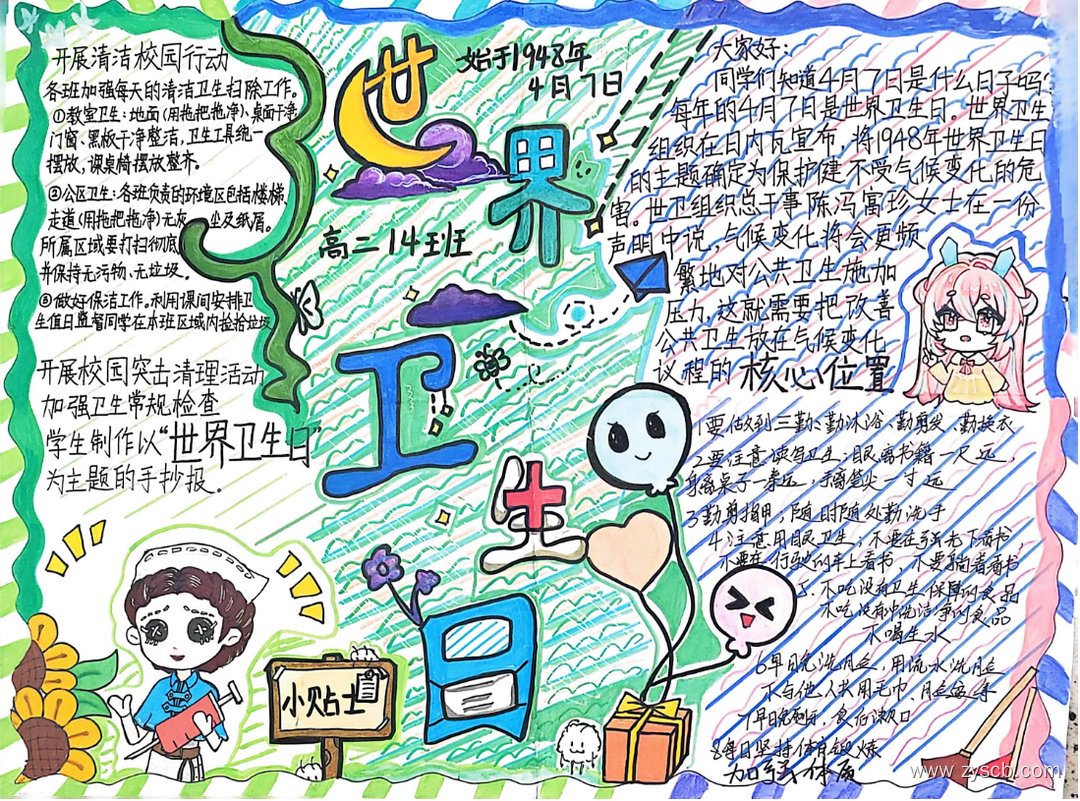 开展清洁校园行动
各班加强每天的清洁卫生扫除工作。
①教室卫生:地面(用拖把拖净)、桌面干净
门窗、黑板干净整洁,卫生工具统一
摆放,课桌椅摆放整齐。
②公区卫生:各班负责的环境区包括楼梯、
走道(用拖把拖净)无灰尘及纸屑。
所属区域要打扫彻底
并保持无污物、无垃圾。
③做好保洁工作。利用课间安排卫
生值日监督同学在本班区域内捡拾垃圾
开展校园突击清理活动
加强卫生常规检查
学生制作以“世界卫生日”
为主题的手抄报。
世界卫生日
始于1948年
4月7日
高二14班
小贴士
大家好:
同学们知道4月7日是什么日子吗?
每年的4月7日是世界卫生日。世界卫生
组织在日内瓦宣布,将1948年世界卫生日
的主题确定为保护健 不受气候变化的危
害。世卫组织总干事陈冯富珍女士在一份
声明中说,气候变化将会更频
繁地对公共卫生施加
压力,这就需要把改善
公共卫生放在气候变化
议程的核心位置
1要做到三勤:勤沐浴、勤剪发、勤换衣
2要注意读写卫生:眼离书籍一尺远,
身离桌子一拳远,手离笔尖一寸远
3勤剪指甲,随时随处勤洗手
4注意用眼卫生:不要在强光下看书,
不要在行驶的车上看书,不要躺着看书
5.不吃没有卫生保障的食品
不吃没有冲洗洁净的食品
不喝生水
6早日先洗脸,用流水洗脸
不与他人共用毛巾、脸盆等
7早日先刷牙,食后漱口
8每日坚持体育锻炼
加强体质
www.zyscb.com